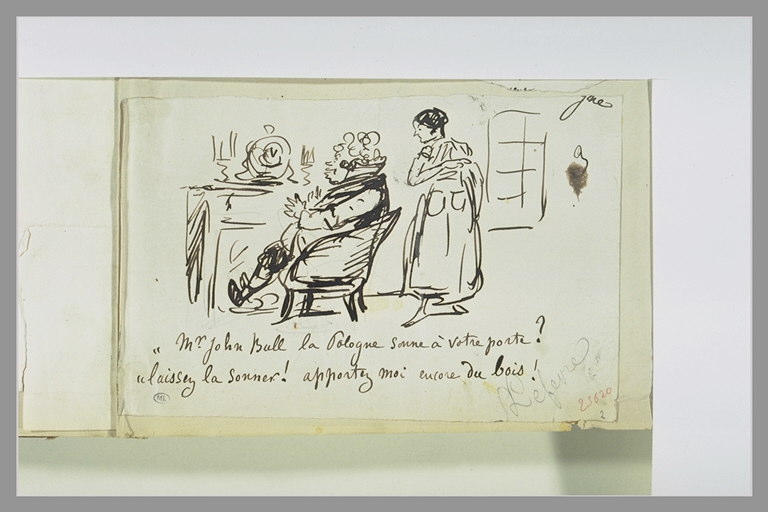 " Mr John Bull la Pologne sonne à votre porte?
" laissez la sonner! apportez moi encore du bois!
Lefevre
23620
2
ML